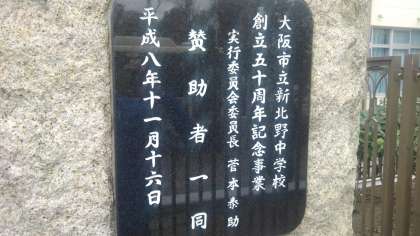 大阪市立新北野中学校
創立五十周年記念事業
実行委員会委員長 菅本泰助
賛助者一同
平成八年十一月十六日